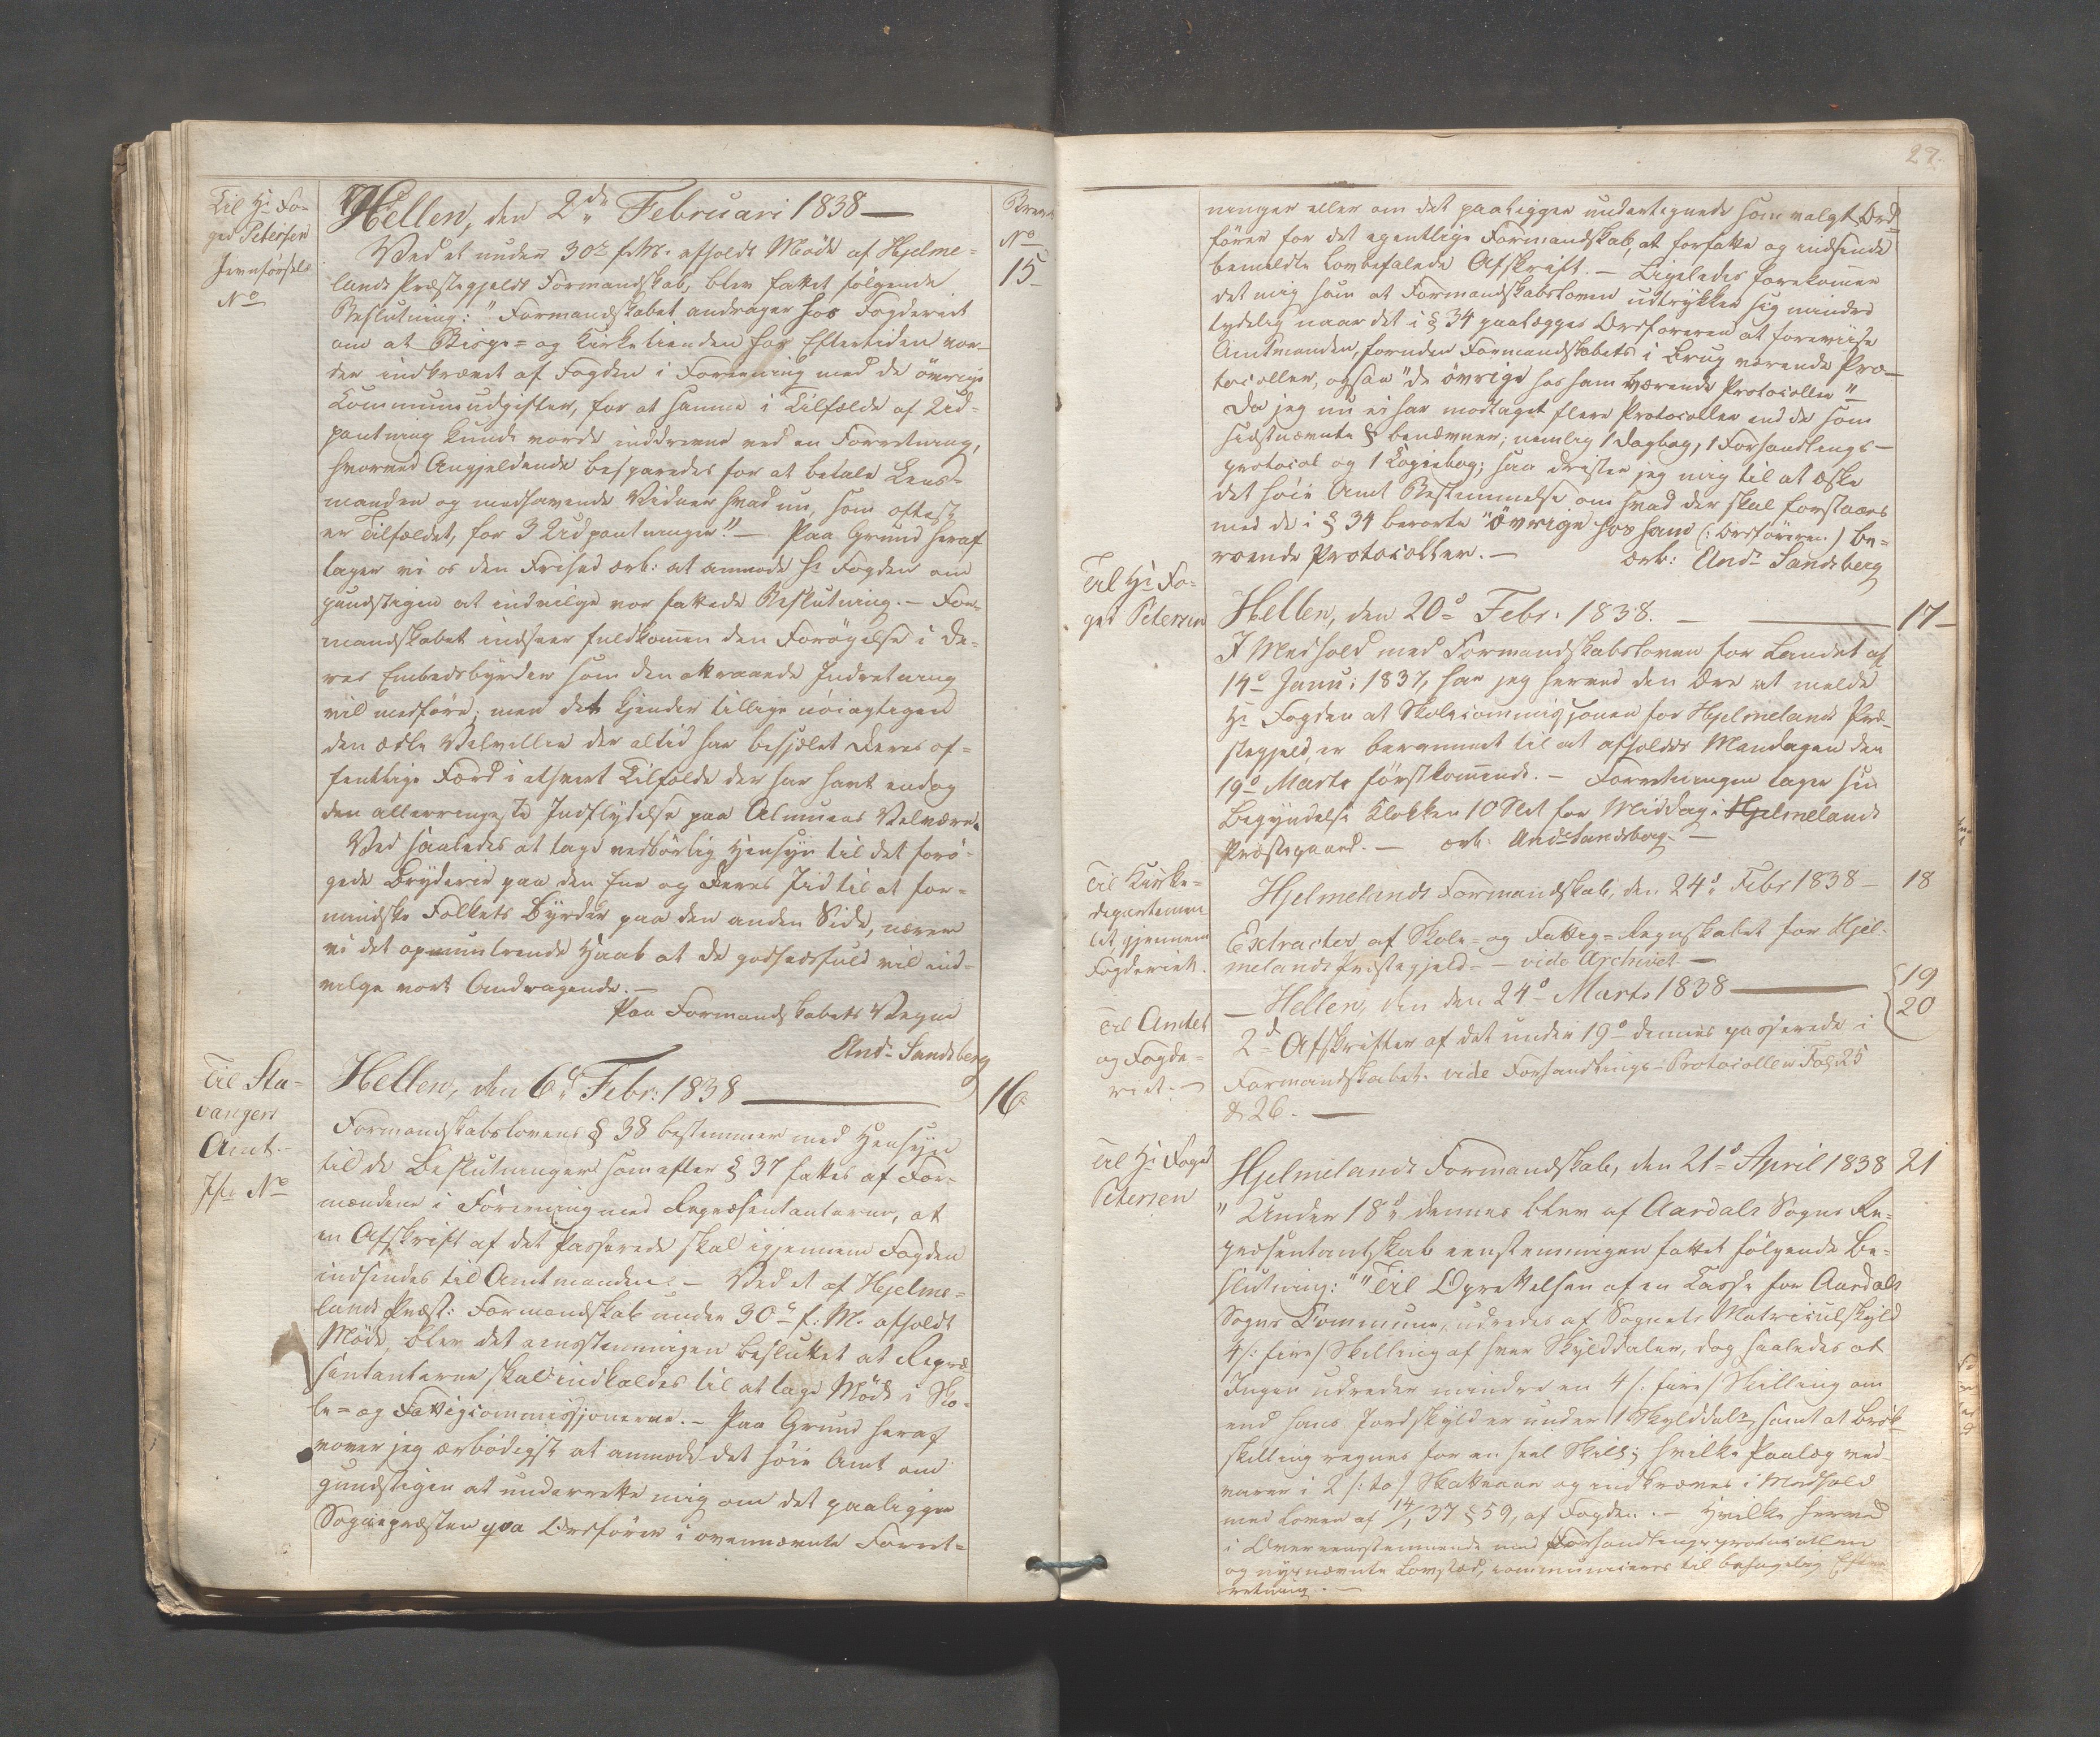 Til Hr Fo-
ged Petersen
Jevnførsels
No
Hellen, den 2den Februari 1838 —
Brev
No
15
Ved et under 30te f. M. afholdt Møde af Hjelme-
lands Præstegjelds Formandskab, blev fattet følgende
Beslutning: "Formandskabet andrager hos Fogderiet
om at Bispe- og Kirketienden for Eftertiden vor-
der indkrævet af Fogden i Forening med de øvrige
Communeudgifter, for at samme i Tilfælde af Ud-
pantning kunde vorde inddrevne ved en Forretning,
hvorved Angjeldende besparedes for at betale Lens-
manden og medhavende Vidner hvad nu, som oftest
er Tilfældet, for 3 Udpantninger." — Paa Grund heraf
tager vi os den Frihed ærb: at anmode Hr Fogden om
gunstigen at indvilge vor fattede Beslutning. — For-
mandskabet indseer fuldkommen den Forøgelse i De-
res Embedsbyrder som den attraaede Indretning
vil medføre; men det kjender tillige nøiagtigen
den ædle Velvillie der altid har besjælet Deres of-
fentlige Færd i ethvert Tilfælde der har havt endog
den allerringeste Indflydelse paa Almuens Velvære.
Ved saaledes at tage vedbørlig Hensyn til det forø-
gede Bryderie paa den Ene og Deres Iid til at for-
mindske Folkets Byrder paa den anden Side, nærer
vi det opmuntrende Haab at De godhedsfuld vil ind-
vilge vort Andragende. —
Paa Formandskabets Vegne
Andr Sandsberg
Til Sta-
vangers
Amt.-
Jfr No
Hellen, den 6te Febr: 1838 —
16
Formandskabslovens § 38 bestemmer med Hensyn
til de Beslutninger som efter § 37 fattes af For-
mændene i Forening med Repræsentanterne, at
en Afskrift af det Passerede skal igjennem Fogden
indsendes til Amtmanden. — Ved et af Hjelme-
lands Præst: Formandskab under 30te f: M. afholdt
Møde, blev det eenstemmigen besluttet at Repræ-
sentanterne skal indkaldes til at tage Møde i Sko-
le- og Fattigcommissionerne. — Paa Grund heraf
vover jeg ærbødigst at anmode det høie Amt om
gundstigen at underrette mig om det paaligger
Sognepræsten qva Ordfører i ovennævnte Forret-
27.
ninger eller om det paaligger undertegnede som valgt Ord-
fører for det egentlige Formandskab, at forfatte og indsende
bemeldte Lovbefalede Afskrift. — Ligeledes forekommer
det mig som at Formandskabsloven udtrykker sig mindre
tydelig naar det i § 34 paalægges Ordføreren at foreviise
Amtmanden, foruden Formandskabets i Brug værende Pro-
tocoller, ogsaa "de øvrige hos ham værende Protocoller"
Da jeg nu ei har modtaget flere Protocoller end de som
sidstnævnte § benævner; nemlig 1 Dagbog, 1 Forhandlings-
protocol og 1 Copiebog; saa drister jeg mig til at æske
det høie Amt Bestemmelse om hvad der skal forstaaes
med de i § 34 berørte "øvrige hos ham (: Ordføreren :) be-
roende Protocoller. —
ærb: Andr Sandsberg
Til Hr Fo-
ged Petersen
Hellen, den 20de Febr. 1838. —
17
I Medhold med Formandskabsloven for Landet af
14de Janu: 1837, har jeg herved den Ære at melde
Hr Fogden at Skolecommissjonen for Hjelmelands Præ-
stegjeld er berammet til at afholdes Mandagen den
19de Marts førstkommende. — Forretningen tager sin
Begyndelse Klokken 10 Slet for Middag i Hjelmelands
Præstegaard. — ærb. Andr Sandsberg. —
Til Kirke-
departemen-
tet, gjennem
Fogderiet.
Hjelmelands Formandskab, den 24de Febr 1838 —
18
Extracter af Skole- og Fattig-Regnskabet for Hjel-
melands Præstegjeld — vide Archivet —
Til Amtet
og Fogde-
riet. —
— Hellen, den den 24de Marts 1838 —
19
20
2de Afskrifter af det under 19de dennes passerede i
Formandskabet. vide Forhandlings-Protocollen Fol 25
& 26. —
Til Hr Foged
Petersen
Hjelmelands Formandskab, den 21de April 1838
21
"Under 18de dennes blev af Aardals Sogns Re-
præsentantskab eenstemmigen fattet følgende Be-
slutning: ""Til Oprettelsen af en Casse for Aardals
Sogns Commune, udredes af Sognets Matriculskyld
4 /: fire/ Skilling af hver Skylddaler, dog saaledes at
Ingen udreder mindre en 4 /: fire/ Skilling om
end hans Jordskyld er under 1 Skylddaler, samt at Brøk
skilling regnes for en heel Skill; hvilke Paalæg ved-
varer i 2 /: to/ Skatteaar og indkræves i Medhold
med Loven af 14/1 37 § 59, af Fogden. — Hvilke herved
i Overeensstemmende med Forhandlingsprotocollen
og nysnævnte Lovsted, communiceres til behagelig Efter-
retning. —